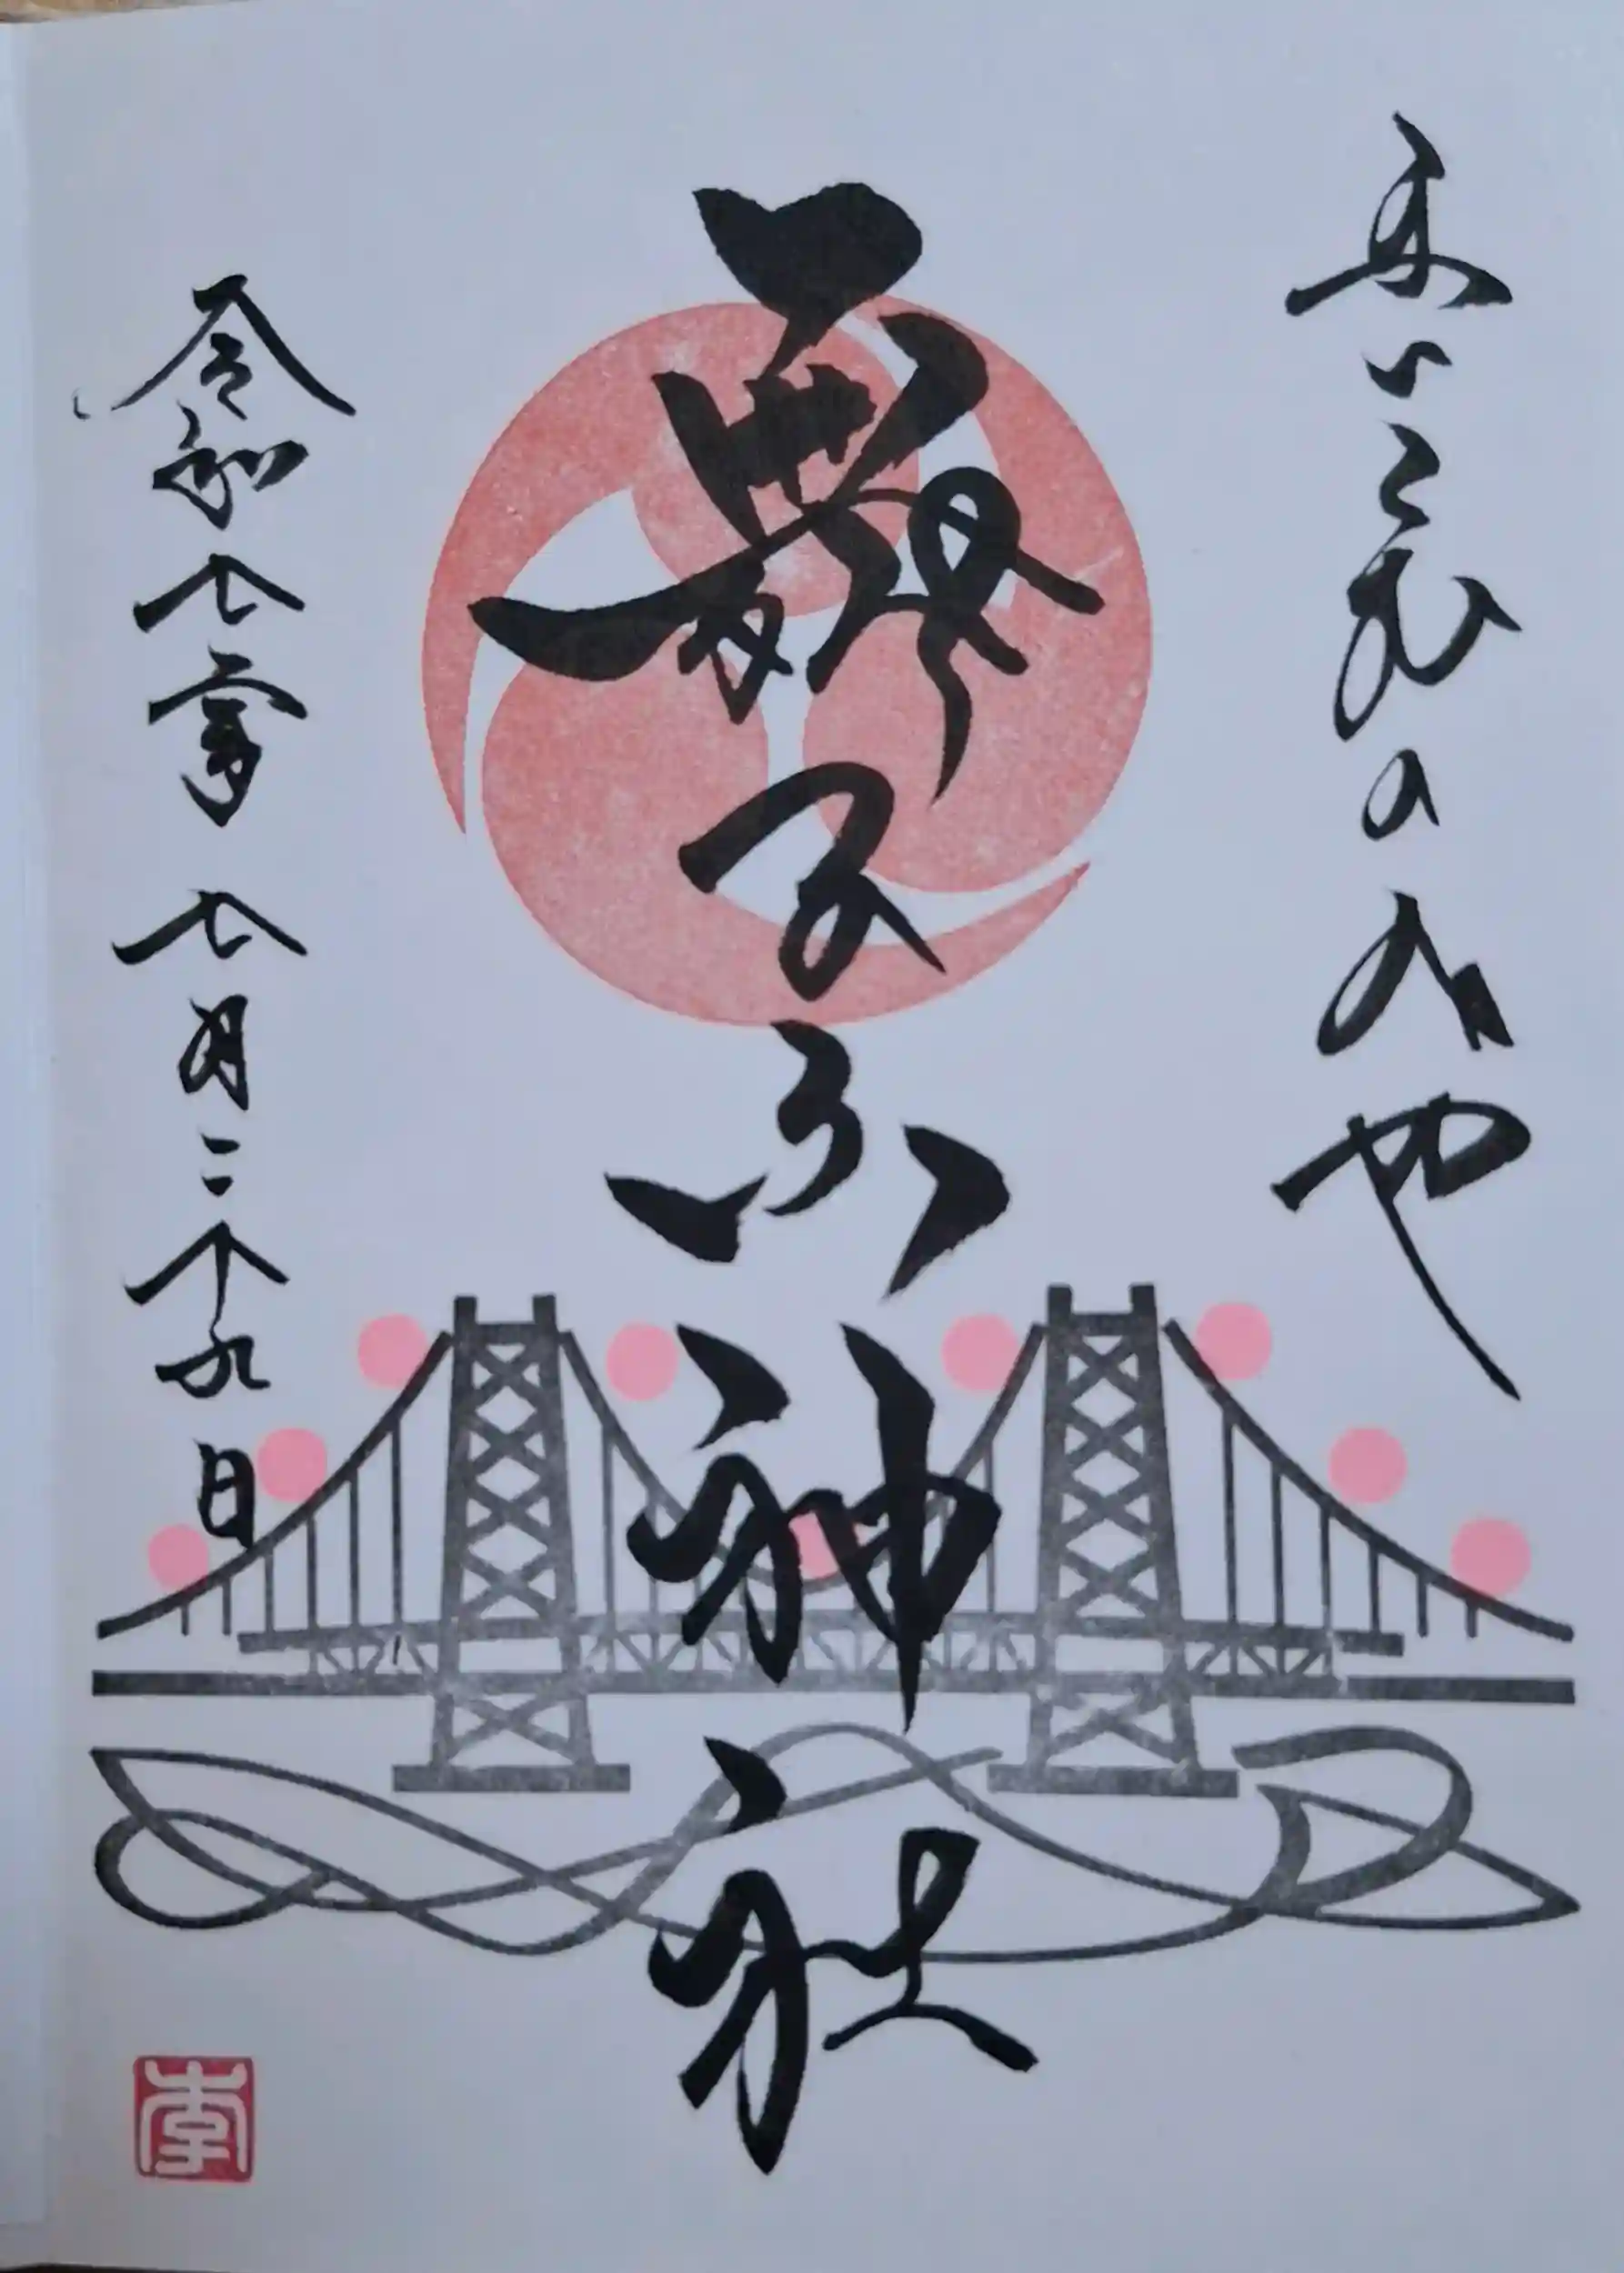 まいこむのみや
舞子六神社
令和七年 七月二十九日
李